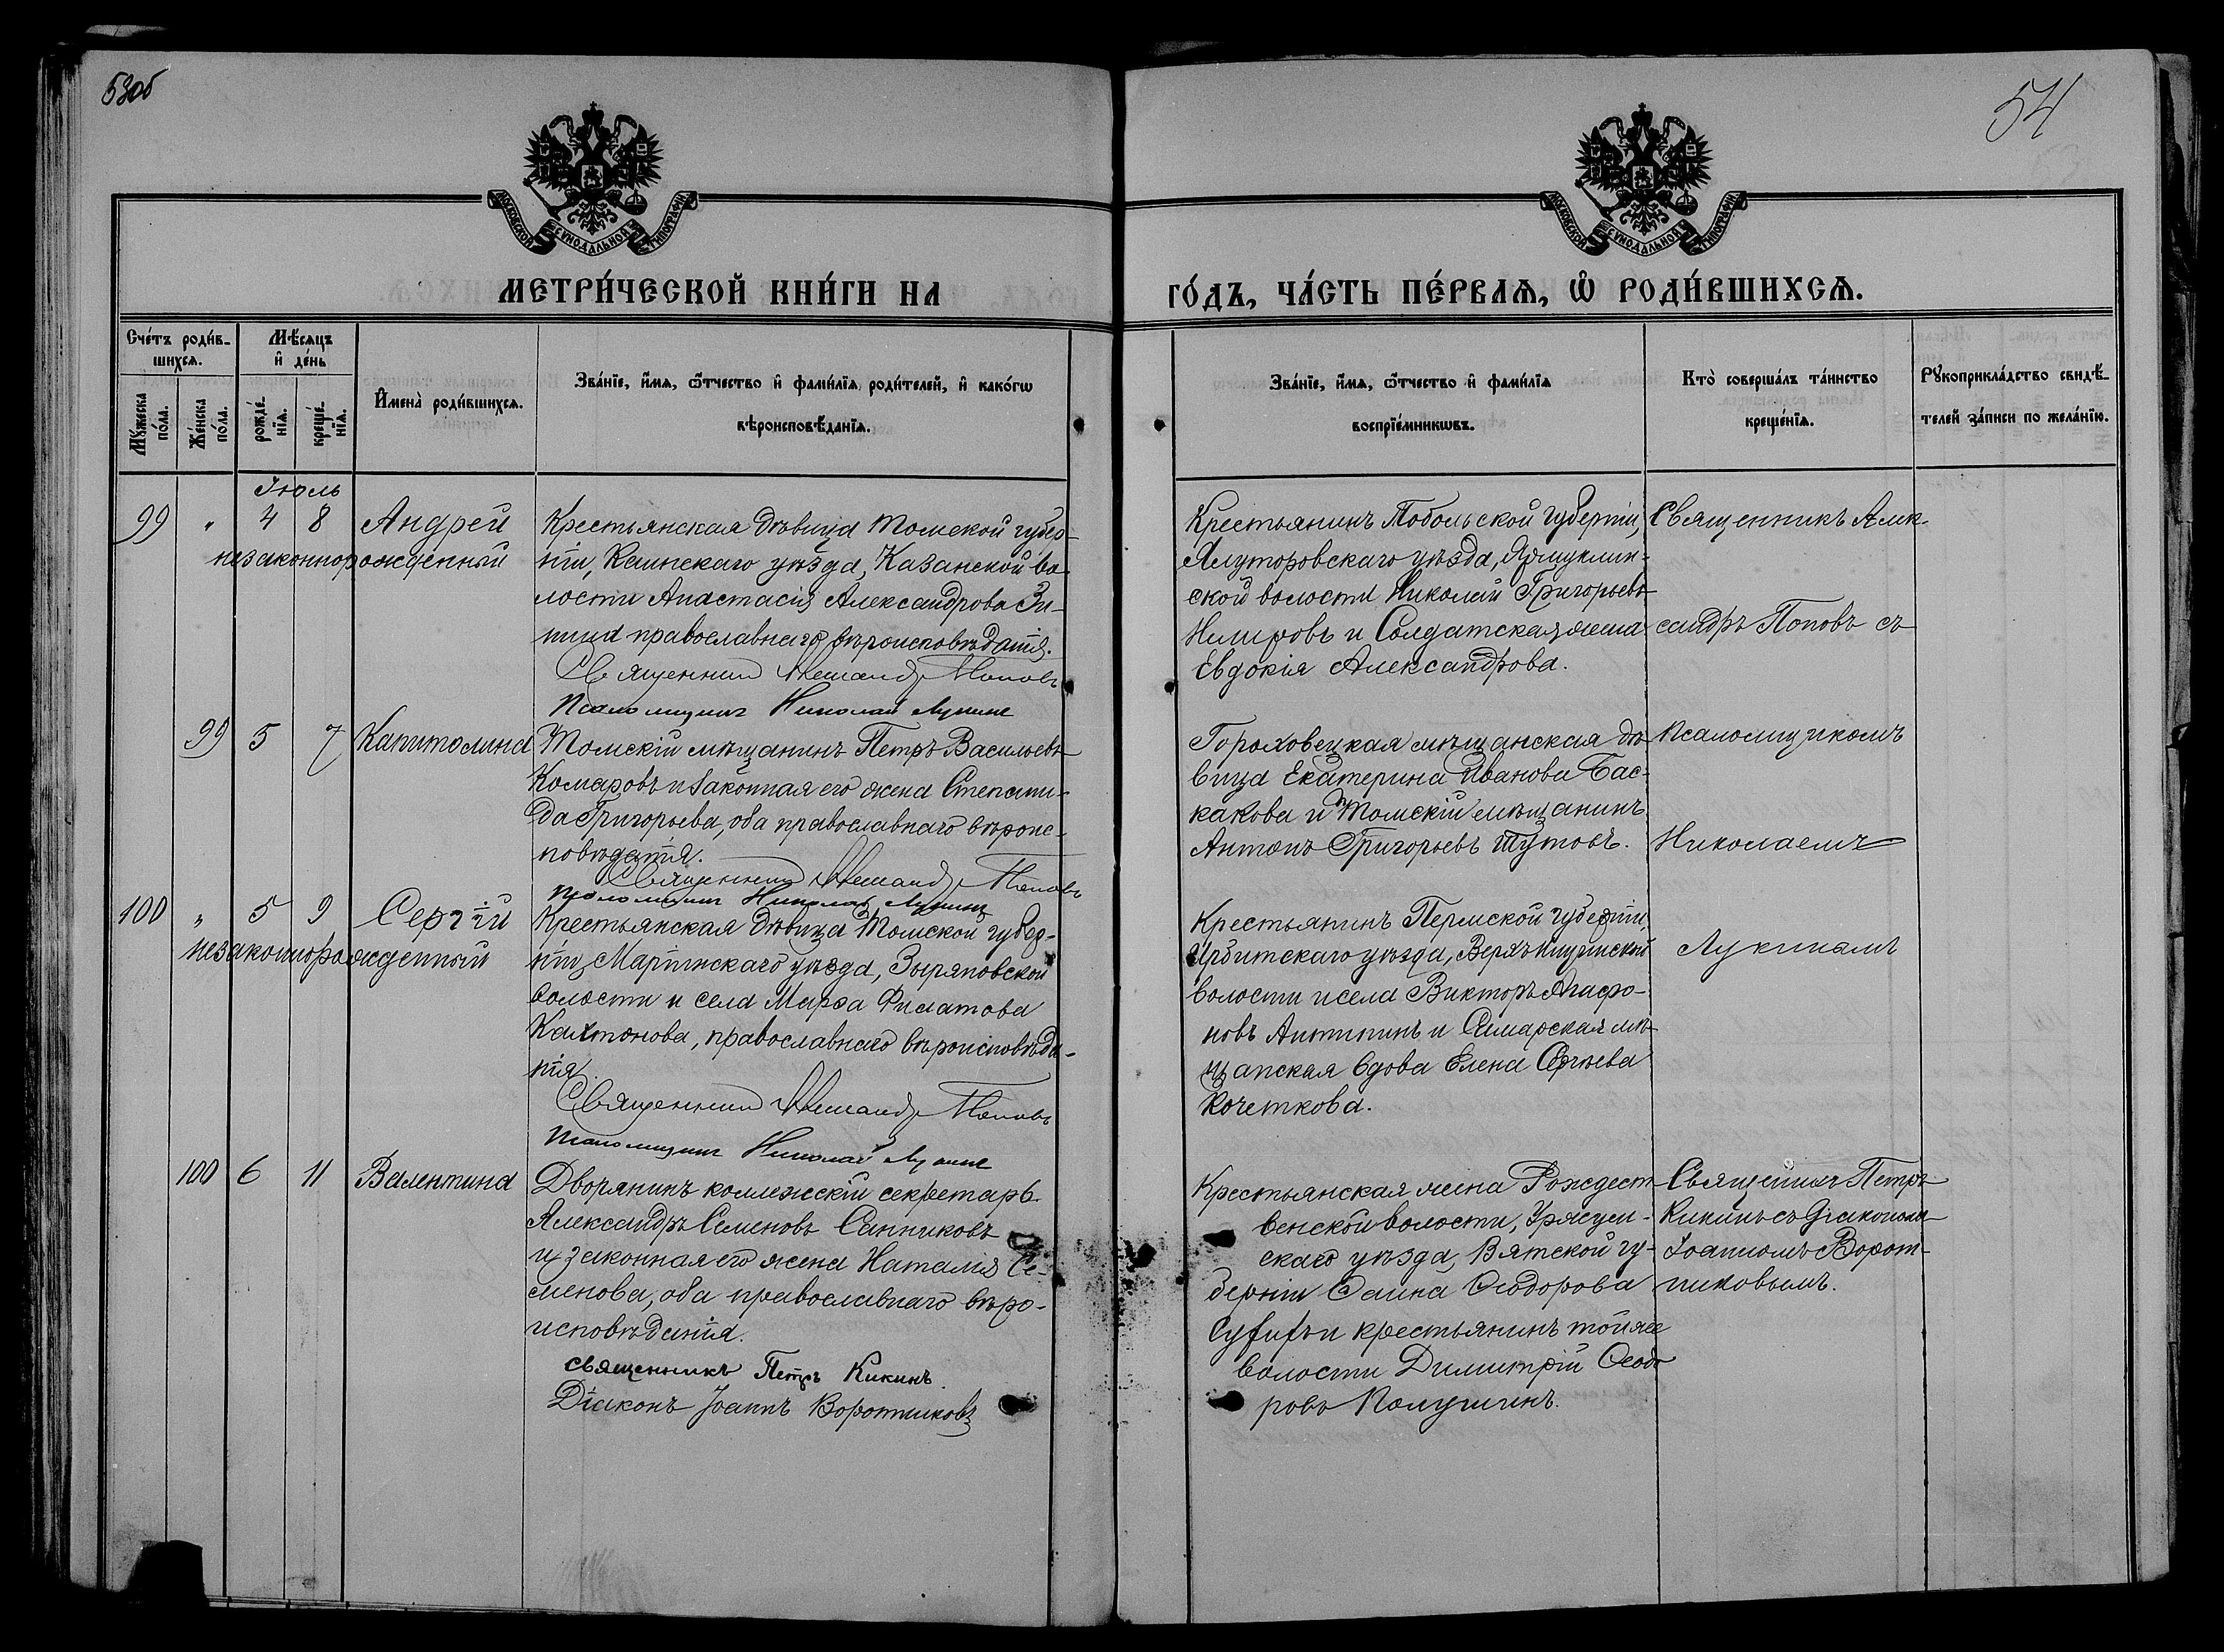 53об
54
МОСКОВСКОЙ СѴНОДАЛЬНОЙ ТИПОГРАФІИ
МОСКОВСКОЙ СѴНОДАЛЬНОЙ ТИПОГРАФІИ
МЕТРИ́ЧЕСКОЙ КНИ́ГИ НА
ГО́ДЪ, ЧА́СТЬ ПЕ́РВАѦ, Ѡ҆ РОДИ́ВШИХСѦ.
Сче́тъ роди́в-
шихсѧ.
Мѣ́сѧцъ
и҆ де́нь
Мꙋ́жеска
по́ла.
Же́нска
по́ла.
рожде́-
нїѧ.
креще́-
нїѧ.
И҆мена̀ роди́вшихсѧ.
Зва́нїе, и҆́мѧ, ѻ҆́тчество и҆ фами́лїѧ роди́телей, и҆ како́гѡ
вѣроисповѣ́данїѧ.
Зва́нїе, и҆́мѧ, ѻ҆́тчество и҆ фами́лїѧ
воспрїе́мникѡвъ.
Кто̀ соверша́лъ та́инство
креще́нїѧ.
Рꙋкоприкла́дство свидѣ́-
телей за́писи по жела́нїю.
Іюль
99 " 4 8 Андрей
незаконнорожденный
Крестьянская дѣвица Томской губер-
ніи, Каинскаго уѣзда, Казанской во-
лости Анастасія Александрова Зи-
нина православнаго вѣроисповѣданія.
Священникъ Александръ Поповъ
Псаломщикъ Николай Лукинъ
Крестьянинъ Тобольской губерніи,
Ялуторовскаго уѣзда,
ской волости Николай Григорьевъ
и Солдатская жена
Евдокія Александрова.
Священникъ Алек-
сандръ Поповъ съ
99 5 7 Капитолина
Томскій мѣщанинъ Петръ Васильевъ
Комаровъ и законная его жена Степани-
да Григорьева, оба православнаго вѣроис-
повѣданія.
Священникъ Александръ Поповъ
Псаломщикъ Николай Лукинъ
Гороховецкая мѣщанская дѣ-
вица Екатерина Иванова Бас-
какова и Томскій мѣщанинъ
Антонъ Григорьевъ Шутовъ.
Псаломщикомъ
Николаемъ
100 " 5 9 Сергій
незаконнорожденный
Крестьянская дѣвица Томской губер-
ніи, Маріинскаго уѣзда, Зыряновской
волости и села Марѳа Филатова
Кахтонова, православнаго вѣроисповѣда-
нія.
Священникъ Александръ Поповъ
Псаломщикъ Николай Лукинъ
Крестьянинъ Пермской губерніи,
Ирбитскаго уѣзда,
волости и села Викторъ Агафо-
новъ Антипинъ и Самарская мѣ-
щанская вдова Елена Сергѣева
Кочеткова.
Лукинымъ
100 6 11 Валентина
Дворянинъ коллежскій секретарь
Александръ Семеновъ Санниковъ
и законная его жена Наталія Се-
менова, оба православнаго вѣро-
исповѣданія.
Священникъ Петръ Кикинъ
Діаконъ Іоаннъ Воротниковъ
Крестьянская жена Рождест-
венской волости,
скаго уѣзда, Вятской гу-
берніи Ѳеодорова
и крестьянинъ той же
волости Димитрій Ѳеодо-
ровъ Полушинъ.
Священникъ Петръ
Кикинъ съ діакономъ
Іоанномъ Ворот-
никовымъ.